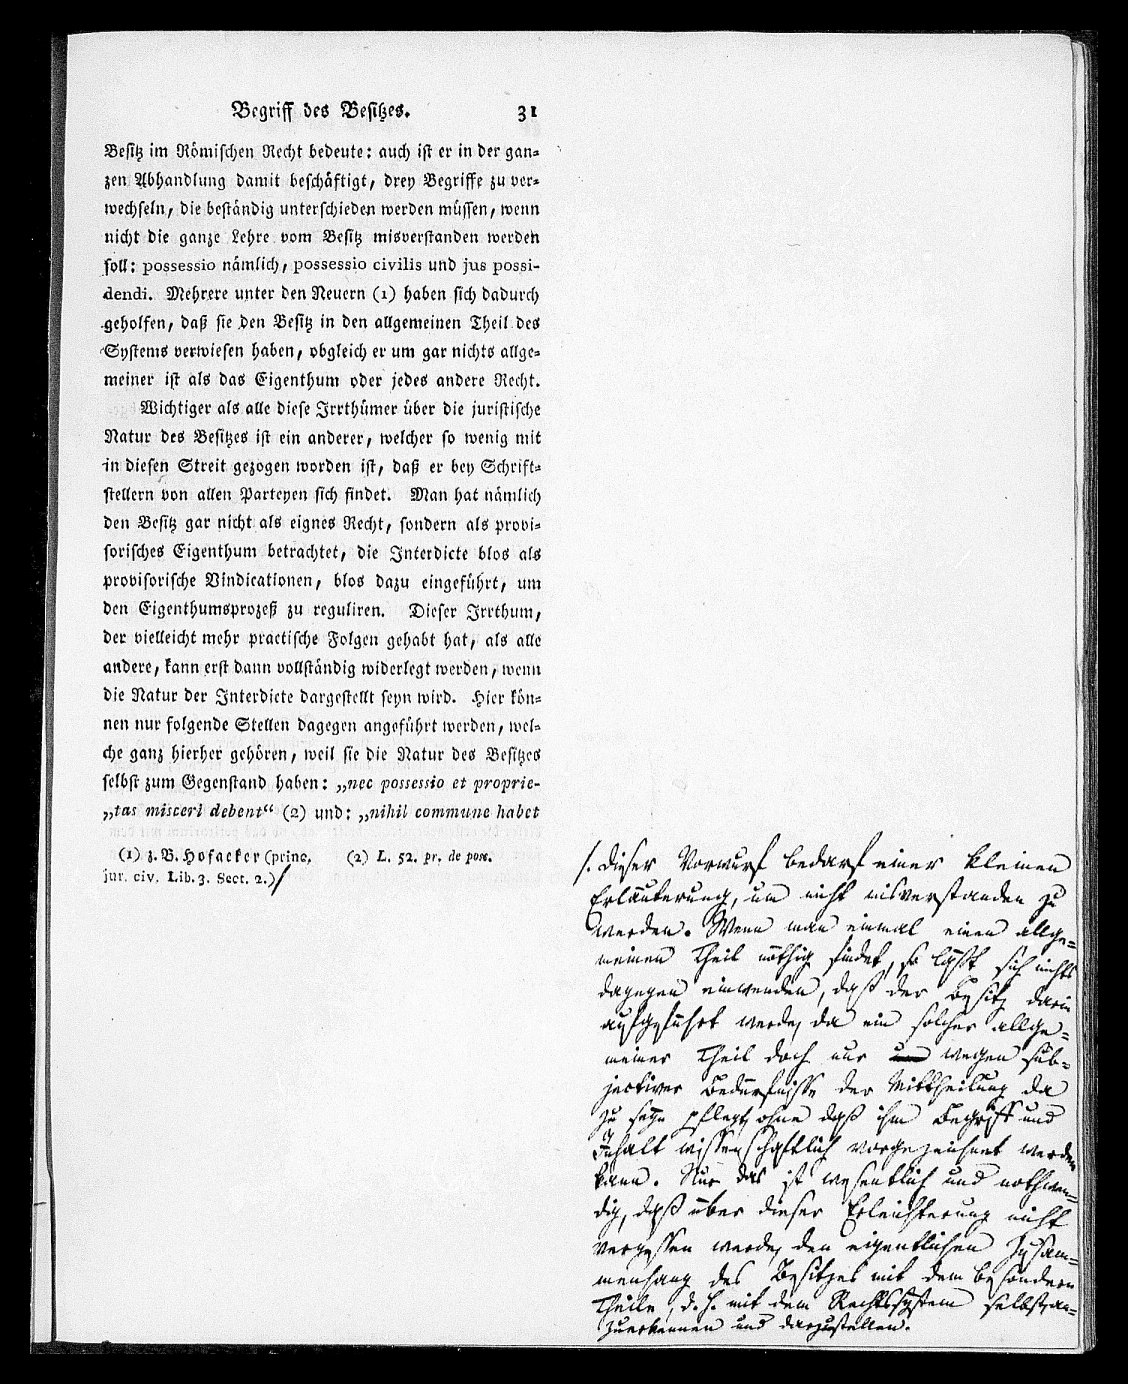 Begriff des Besitzes. 31
Besitz im Römischen Recht bedeute: auch ist er in der gan-
zen Abhandlung damit beschäftigt, drey Begriffe zu ver-
wechseln, die beständig unterschieden werden müssen, wenn
nicht die ganze Lehre vom Besitz misverstanden werden
soll: possessio nämlich, possessio civilis und jus possi-
dendi. Mehrere unter den Neuern (1) haben sich dadurch
geholfen, daß sie den Besitz in den allgemeinen Theil des
Systems verwiesen haben, obgleich er um gar nichts allge-
meiner ist als das Eigenthum oder jedes andere Recht.
Wichtiger als alle diese Irrthümer über die juristische
Natur des Besitzes ist ein anderer, welcher so wenig mit
in diesen Streit gezogen worden ist, daß er bey Schrift-
stellern von allen Parteyen sich findet. Man hat nämlich
den Besitz gar nicht als eignes Recht, sondern als provi-
sorisches Eigenthum betrachtet, die Interdicte blos als
provisorische Vindicationen, blos dazu eingeführt, um
den Eigenthumsprozeß zu reguliren. Dieser Irrthum,
der vielleicht mehr practische Folgen gehabt hat, als alle
andere, kann erst dann vollständig widerlegt werden, wenn
die Natur der Interdicte dargestellt seyn wird. Hier kön-
nen nur folgende Stellen dagegen angeführt werden, wel-
che ganz hierher gehören, weil sie die Natur des Besitzes
selbst zum Gegenstand haben: „nec possessio et proprie-
„tas misceri debent“ (2) und: „nihil commune habet
(1) z. B. Hofacker (princ.
jur. civ. Lib. 3. Sect. 2.)/
(2) L. 52. pr. de poss.
/. Dieser Vorwurf bedarf einer kleinen
Erläuterung, um nicht misverstanden zu
werden. Wenn man einmal einen allge-
meinen Theil nöthig findet, so läßt sich nichts
dagegen einwenden, daß der Besitz darin
aufgeführt werde, da ein solcher allge-
meiner Theil doch nur wegen sub-
jectiver Bedürfnisse der Mittheilung da
zu seyn pflegt, ohne daß ihm Begriff und
Inhalt wissenschaftlich vorgezeichnet werden
kann. Nur das ist wesentlich und nothwen-
dig, daß über dieser Erleichterung nicht
vergessen werde, den eigentlichen Zusam-
menhang des Besitzes mit dem besondern
Theile, d. h. mit dem Rechtssystem selbst, an-
zuerkennen und darzustellen.